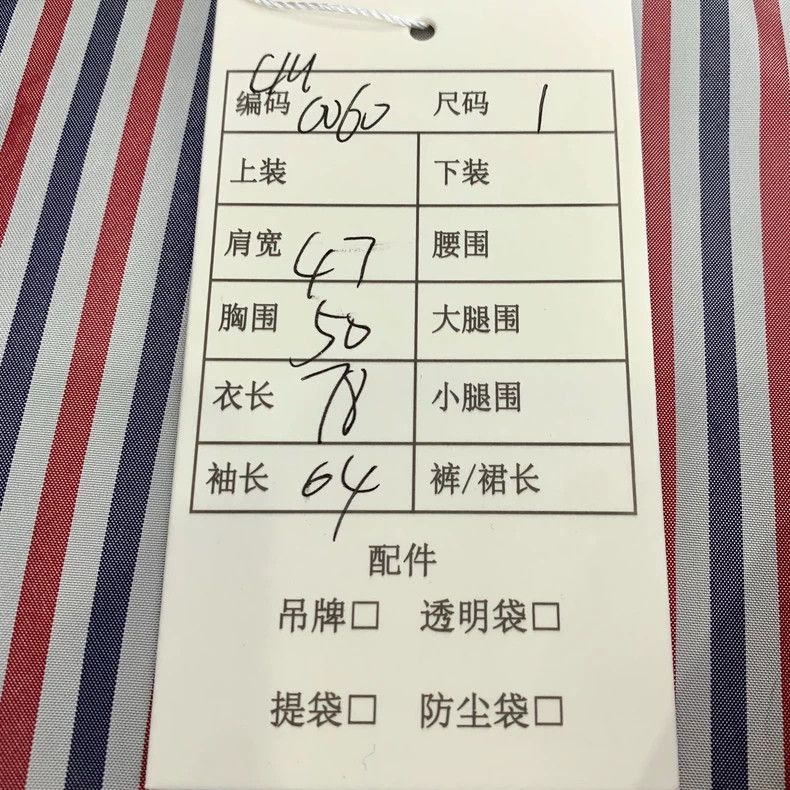 编码 CM 0060 尺码 1
上装 下装
肩宽 47 腰围
胸围 50 大腿围
衣长 78 小腿围
袖长 64 裤/裙长
配件
吊牌□ 透明袋□
提袋□ 防尘袋□